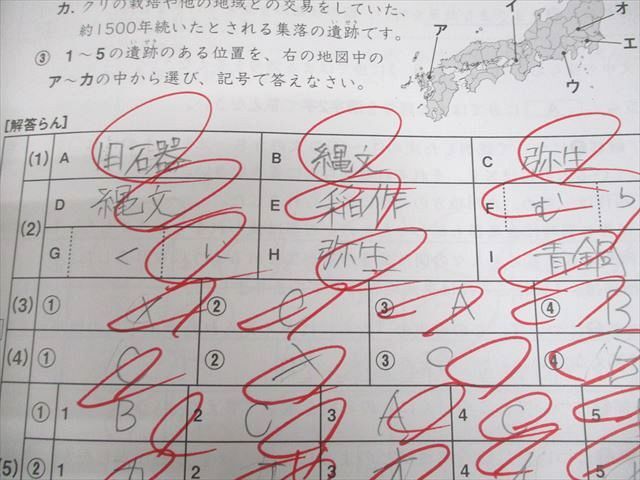 カ. クリの栽培や他の地域との交易をしていた、
約1500年続いたとされる集落の遺跡です。
③ 1～5の遺跡のある位置を、右の地図中の
ア～カの中から選び、記号で答えなさい。
ア イ オ エ ウ
[解答らん]
(1) A 旧石器 B 縄文 C 弥生
(2) D 縄文 E 稲作 F む ら
G く に H 弥生 I 青銅
(3) ① X ② C ③ A ④ B
(4) ① C ② X ③ ④ B
(5) ① 1 B 2 C 3 A 4 C 5
② 1 カ 2 3 4 5